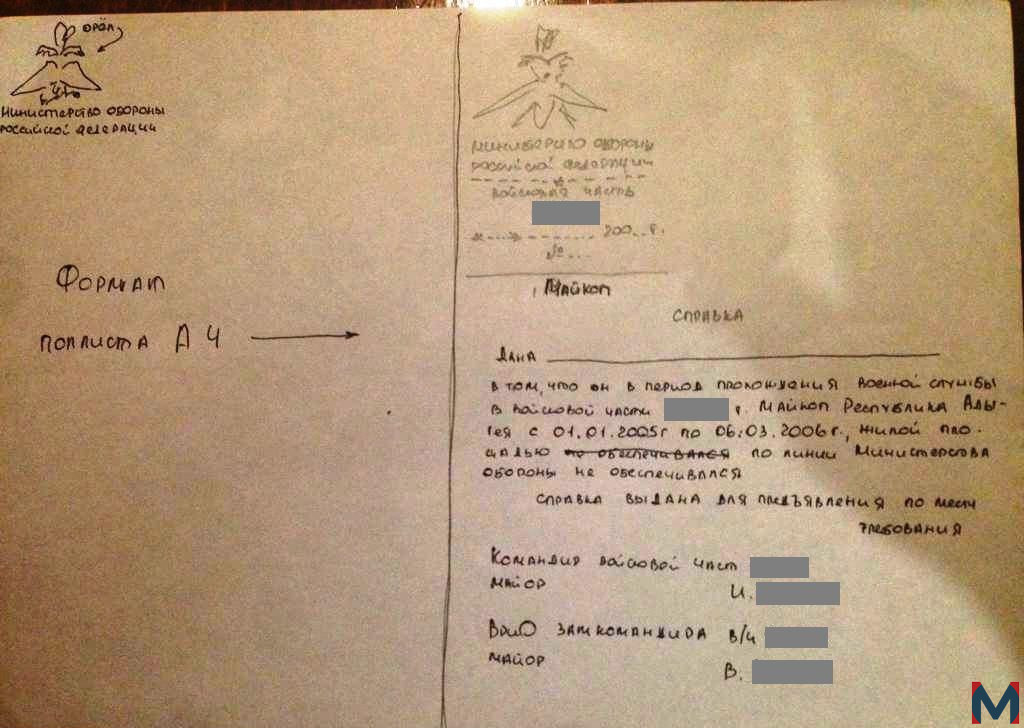 орёл
Министерство обороны
российской федерации
Формат
поллиста А4
Министерство обороны
российской федерации
войсковая часть
200...г.
№...
г. Майкоп
справка
Дана
в том, что он в период прохождения военной службы
в войсковой части г. Майкоп Республика Ады-
гея с 01.01.2005г по 06.03.2006г., жилой пло-
щадью по обеспечивался по линии Министерства
обороны не обеспечивался
справка выдана для предъявления по месту
требования
Командир войсковой част
майор
И.
ВриО замкомандира в/ч
майор
В.
М